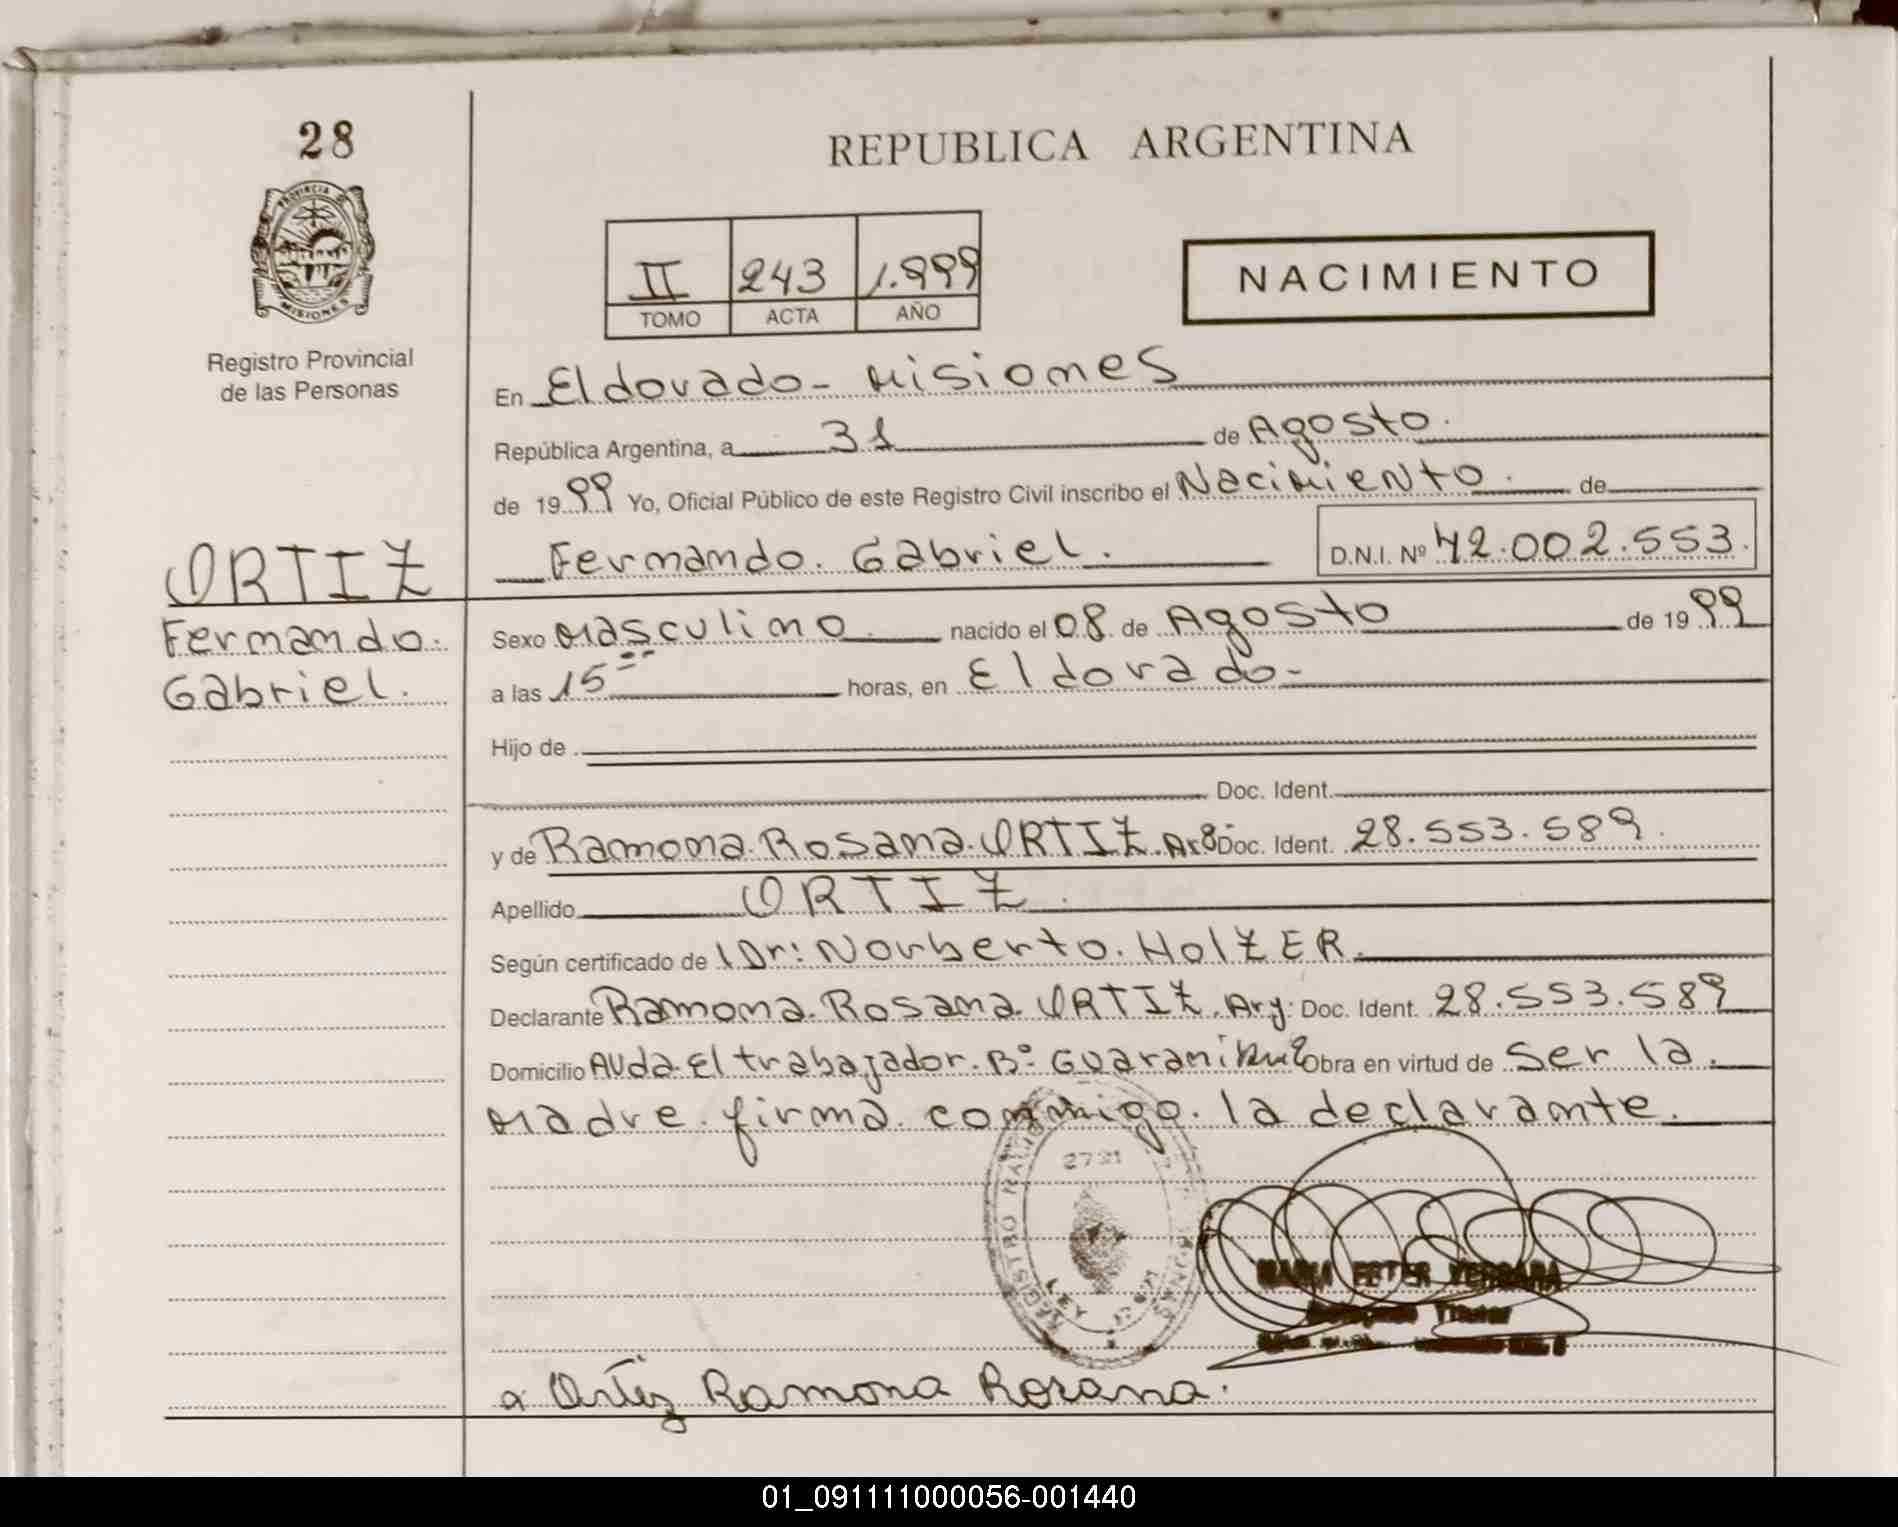 28
PROVINCIA DE
MISIONES
Registro Provincial
de las Personas
ORTIZ
Fernando.
Gabriel.
REPUBLICA ARGENTINA
II 243 1.999
TOMO ACTA AÑO
NACIMIENTO
En Eldorado - Misiones
República Argentina, a 31 de Agosto.
de 1999 Yo, Oficial Público de este Registro Civil inscribo el Nacimiento. de
Fernando. Gabriel. D.N.I. Nº 42.002.553.
Sexo Masculino nacido el 08 de Agosto de 1999
a las 15 horas, en Eldorado-
Hijo de
Doc. Ident.
y de Ramona. Rosana. ORTIZ. Arg. Doc. Ident. 28.553.589.
Apellido ORTIZ.
Según certificado de Dr: Norberto. HolZER.
Declarante Ramona. Rosana. ORTIZ. Arg: Doc. Ident. 28.553.589
Domicilio AVda. El trabajador. Bº Guarani Obra en virtud de Ser la.
Madre. firma. conmigo. la declarante.
REGISTRO
LEY
VERGARA
Titular
Ortiz Ramona Rosana.
01_091111000056-001440